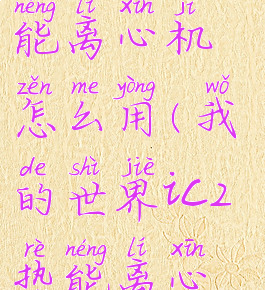 néng lí xīn jī
能离心机
zěn me yòng wǒ
怎么用(我
de shì jiè
的世界ic2
rè néng lí xīn
热能离心